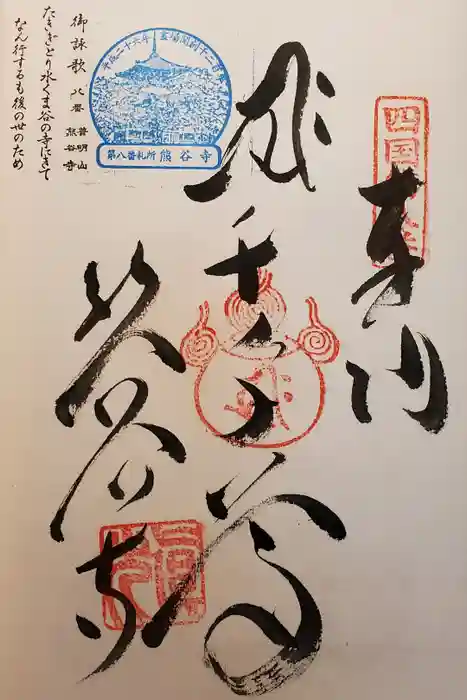 四国
奉納
千手
熊谷寺
平成二十六年 霊場開創千二百年
第八番札所 熊谷寺
御詠歌 八番 普明山 熊谷寺
たきぎとり水くま谷の寺にきて
なん行するも後の世のため